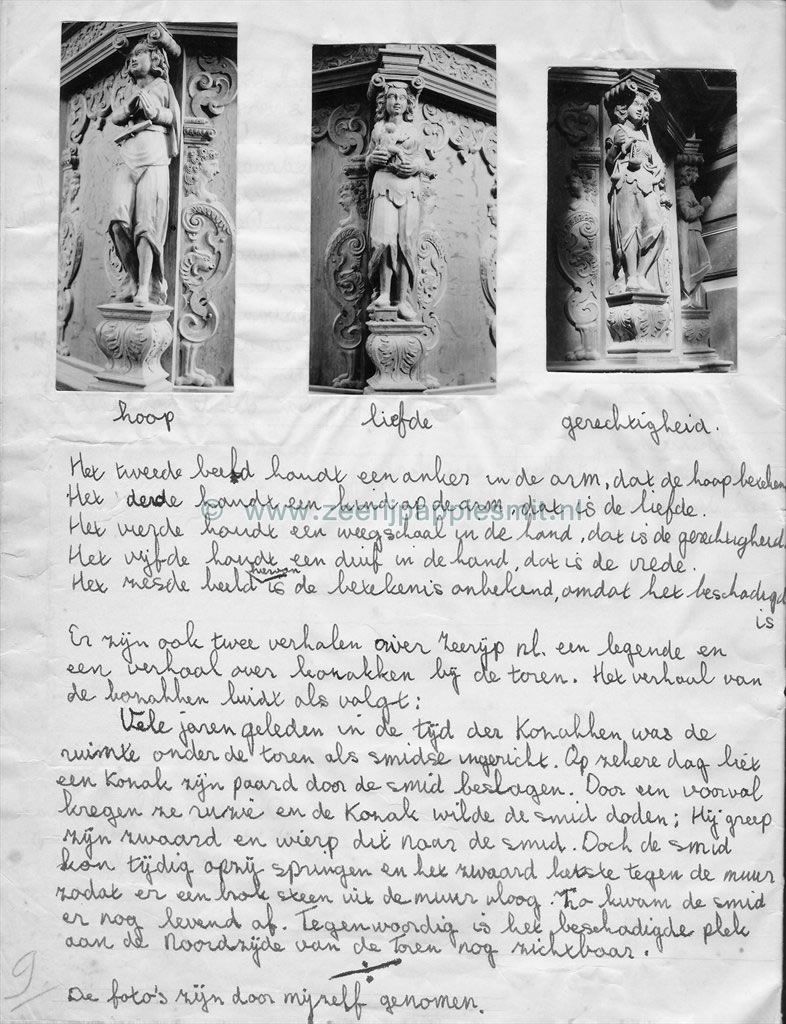 hoop
liefde
gerechtigheid.
Het tweede beeld houdt een anker in de arm, dat de hoop beteken
Het derde houdt een kind op de arm, dat is de liefde.
© www.zeerijpappiesmit.nl
Het vierde houdt een weegschaal in de hand, dat is de gerechtigheid.
Het vijfde houdt een duif in de hand, dat is de vrede.
Het zesde beeld hiervan is de betekenis onbekend, omdat het beschadigd
is
Er zijn ook twee verhalen over Zeerijp nl. een legende en
een verhaal over kozakken bij de toren. Het verhaal van
de kozakken luidt als volgt:
Vele jaren geleden in de tijd der Kozakken was de
ruimte onder de toren als smidse ingericht. Op zekere dag liet
een Kozak zijn paard door de smid beslagen. Door een voorval
kregen ze ruzie en de Kozak wilde de smid doden; Hij greep
zijn zwaard en wierp dit naar de smid. Doch de smid
kon tijdig opzij springen en het zwaard ketste tegen de muur
zodat er een brok steen uit de muur vloog. Zo kwam de smid
er nog levend af. Tegenwoordig is het beschadigde plek
aan de Noordzijde van de Toren nog zichtbaar.
De foto's zijn door mijzelf genomen.
9